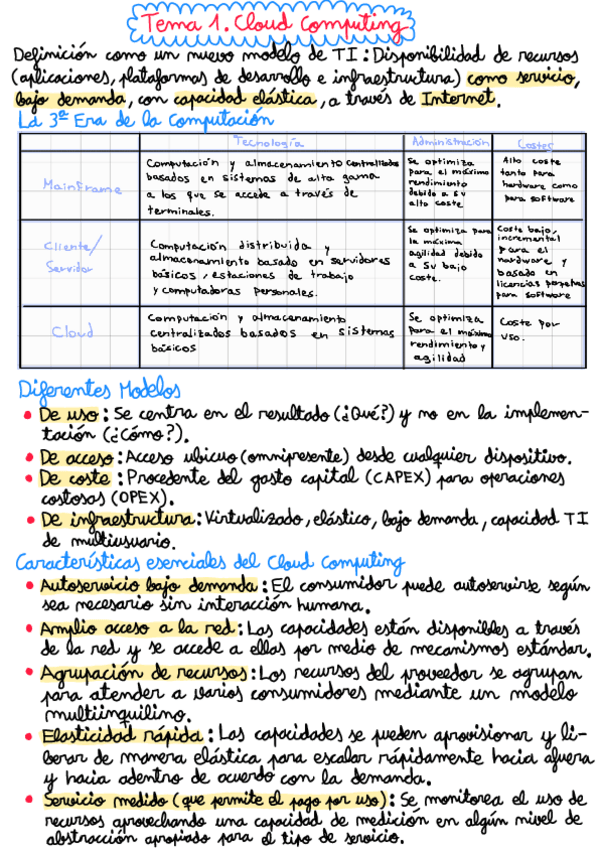 Tema 1. Cloud Computing
Definición como un nuevo modelo de TI: Disponibilidad de recursos
(aplicaciones, plataformas de desarrollo e infraestructura) como servicio,
bajo demanda, con capacidad elástica, a través de Internet.
La 3ª Era de la Computación
Tecnología Administración Costes
Mainframe
Computación y almacenamiento centralizados
basados en sistemas de alta gama
a los que se accede a través de
terminales.
Se optimiza
para el máximo
rendimiento
debido a su
alto coste
Alto coste
tanto para
hardware como
para software
Cliente/
Servidor
Computación distribuida y
almacenamiento basado en servidores
básicos, estaciones de trabajo
y computadoras personales.
Se optimiza para
la máxima
agilidad debido
a su bajo
coste.
Coste bajo,
incremental
para el
hardware y
basado en
licencias perpetuas
para software
Cloud
Computación y almacenamiento
centralizados basados en sistemas
básicos
Se optimiza
para el máximo
rendimiento y
agilidad
Coste por
uso.
Diferentes Modelos
• De uso: Se centra en el resultado (¿Qué?) y no en la implemen-
tación (¿Cómo?).
• De acceso: Acceso ubicuo (omnipresente) desde cualquier dispositivo.
• De coste: Procedente del gasto capital (CAPEX) para operaciones
costosas (OPEX).
• De infraestructura: Virtualizado, elástico, bajo demanda, capacidad TI
de multiusuario.
Características esenciales del Cloud Computing
• Autoservicio bajo demanda: El consumidor puede autoservirse según
sea necesario sin interacción humana.
• Amplio acceso a la red: Las capacidades están disponibles a través
de la red y se accede a ellas por medio de mecanismos estándar.
• Agrupación de recursos: Los recursos del proveedor se agrupan
para atender a varios consumidores mediante un modelo
multiinquilino.
• Elasticidad rápida: Las capacidades se pueden aprovisionar y li-
berar de manera elástica para escalar rápidamente hacia afuera
y hacia adentro de acuerdo con la demanda.
• Servicio medido (que permite el pago por uso): Se monitorea el uso de
recursos aprovechando una capacidad de medición en algún nivel de
abstracción apropiado para el tipo de servicio.